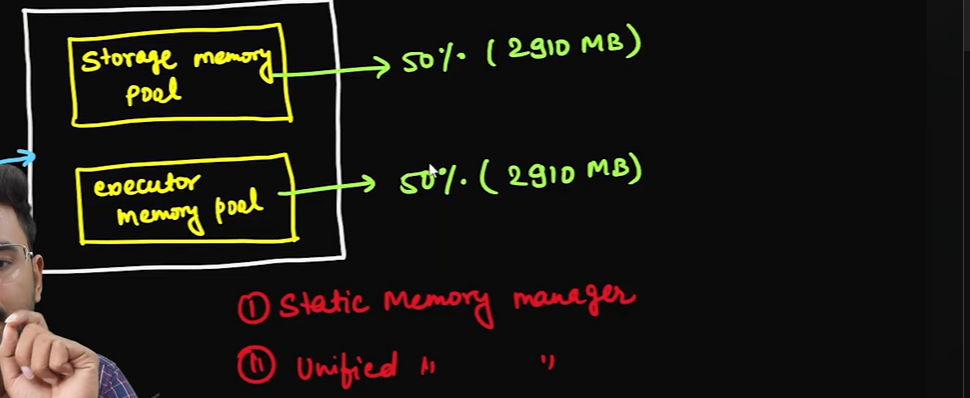 Storage memory
pool
50% (2910 MB)
executor
memory pool
50% (2910 MB)
① Static Memory manager
⑪ Unified " "